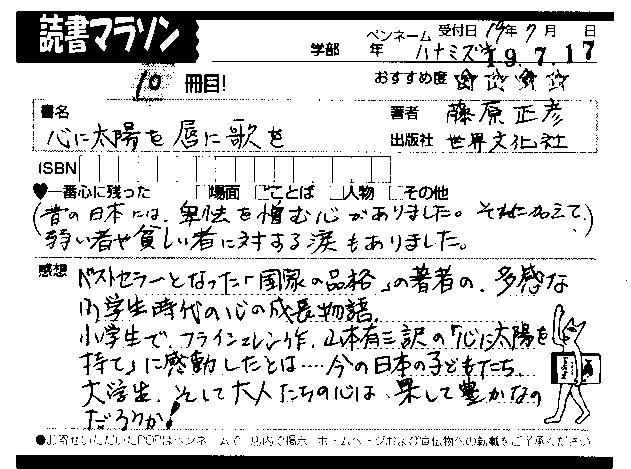 読書マラソン
学部 年 ペンネーム ハナミズキ
受付日 19年7月 日
19.7.17
10 冊目!
おすすめ度 ☆☆☆☆
書名
心に太陽を 唇に歌を
著者 藤原正彦
出版社 世界文化社
ISBN
♥一番心に残った □場面 □ことば □人物 □その他
(昔の日本には、卑怯を憎む心がありました。それに加えて、
弱い者や貧しい者に対する涙もありました。)
感想 ベストセラーとなった「国家の品格」の著者の、多感な
小学生時代の心の成長物語。
小学生で、フライシュレン作、山本有三訳の「心に太陽を
持て」に感動したとは…今の日本の子どもたち、
大学生、そして大人たちの心は、果して豊かなの
だろうか!
●お寄せいただいたPOPはペンネームで、店内で掲示、ホームページおよび宣伝物への転載をご了承ください